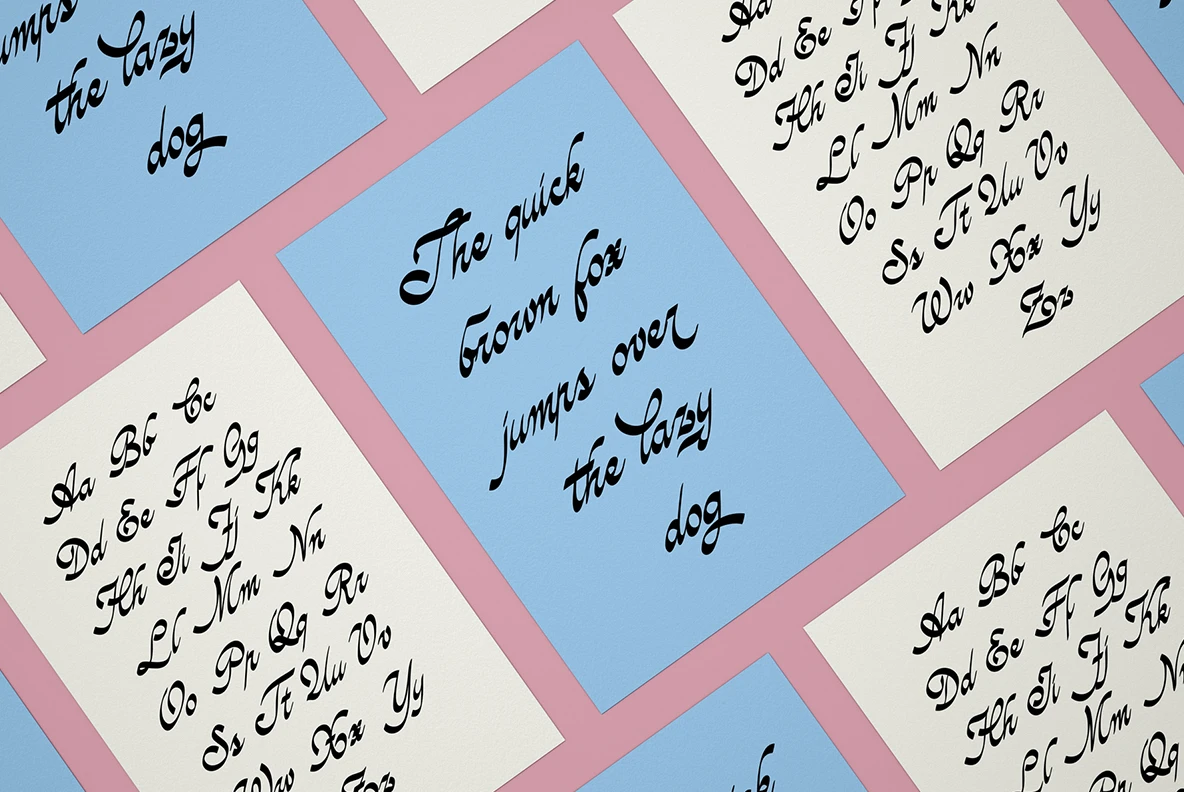 umps
the lazy
dog
The quick
brown fox
jumps over
the lazy
dog
Aa
Dd Ee Ff
Hh Ii Jj Kk
Ll Mm Nn
Oo Pp Qq Rr
Ss Tt Uu Vv
Ww Xx Yy
Zz
Aa Bb Cc
Dd Ee Ff Gg
Hh Ii Jj Kk
Ll Mm Nn
Oo Pp Qq Rr
Ss Tt Uu Vv
Ww Xx Yy
Zz
Aa Bb Cc
Dd Ee Ff Gg
Hh Ii Jj Kk
Ll Mm Nn
Pp Qq